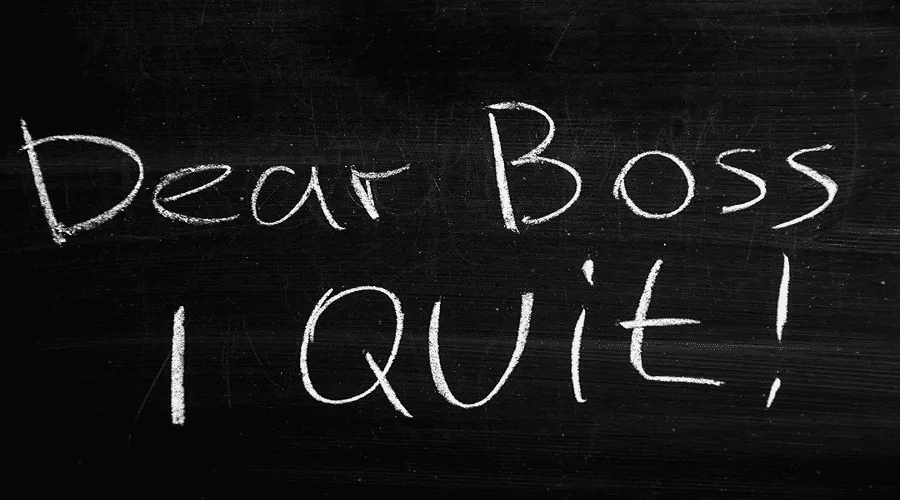 Dear Boss
I QUit!